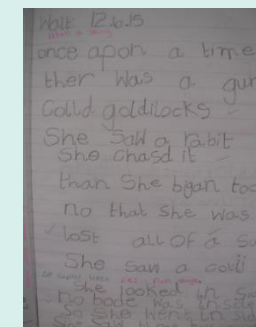 Walt 12.6.15
once apon a time
ther was a gur
Colld goldilocks
She Saw a rabit
She chasd it
than She bgan too
no that she was
lost all OF a Su
She Saw a
She looked in
No bode was
So She Went in